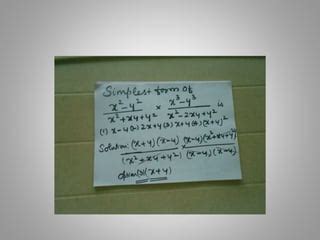 Simplest form of
x² - y² / x² + xy + y² × x³ - y³ / x² - 2xy + y² is
(1) x - y (2) 2x + y (3) x + y (4) (x + y)²
Solution: (x + y) (x - y) / (x² + xy + y²) (x - y) (x² + xy + y²) / (x - y) (x - y)
option (3) (x + y)